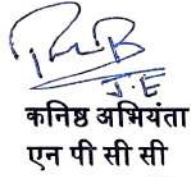 J.E
कनिष्ठ अभियंता
एन पी सी सी